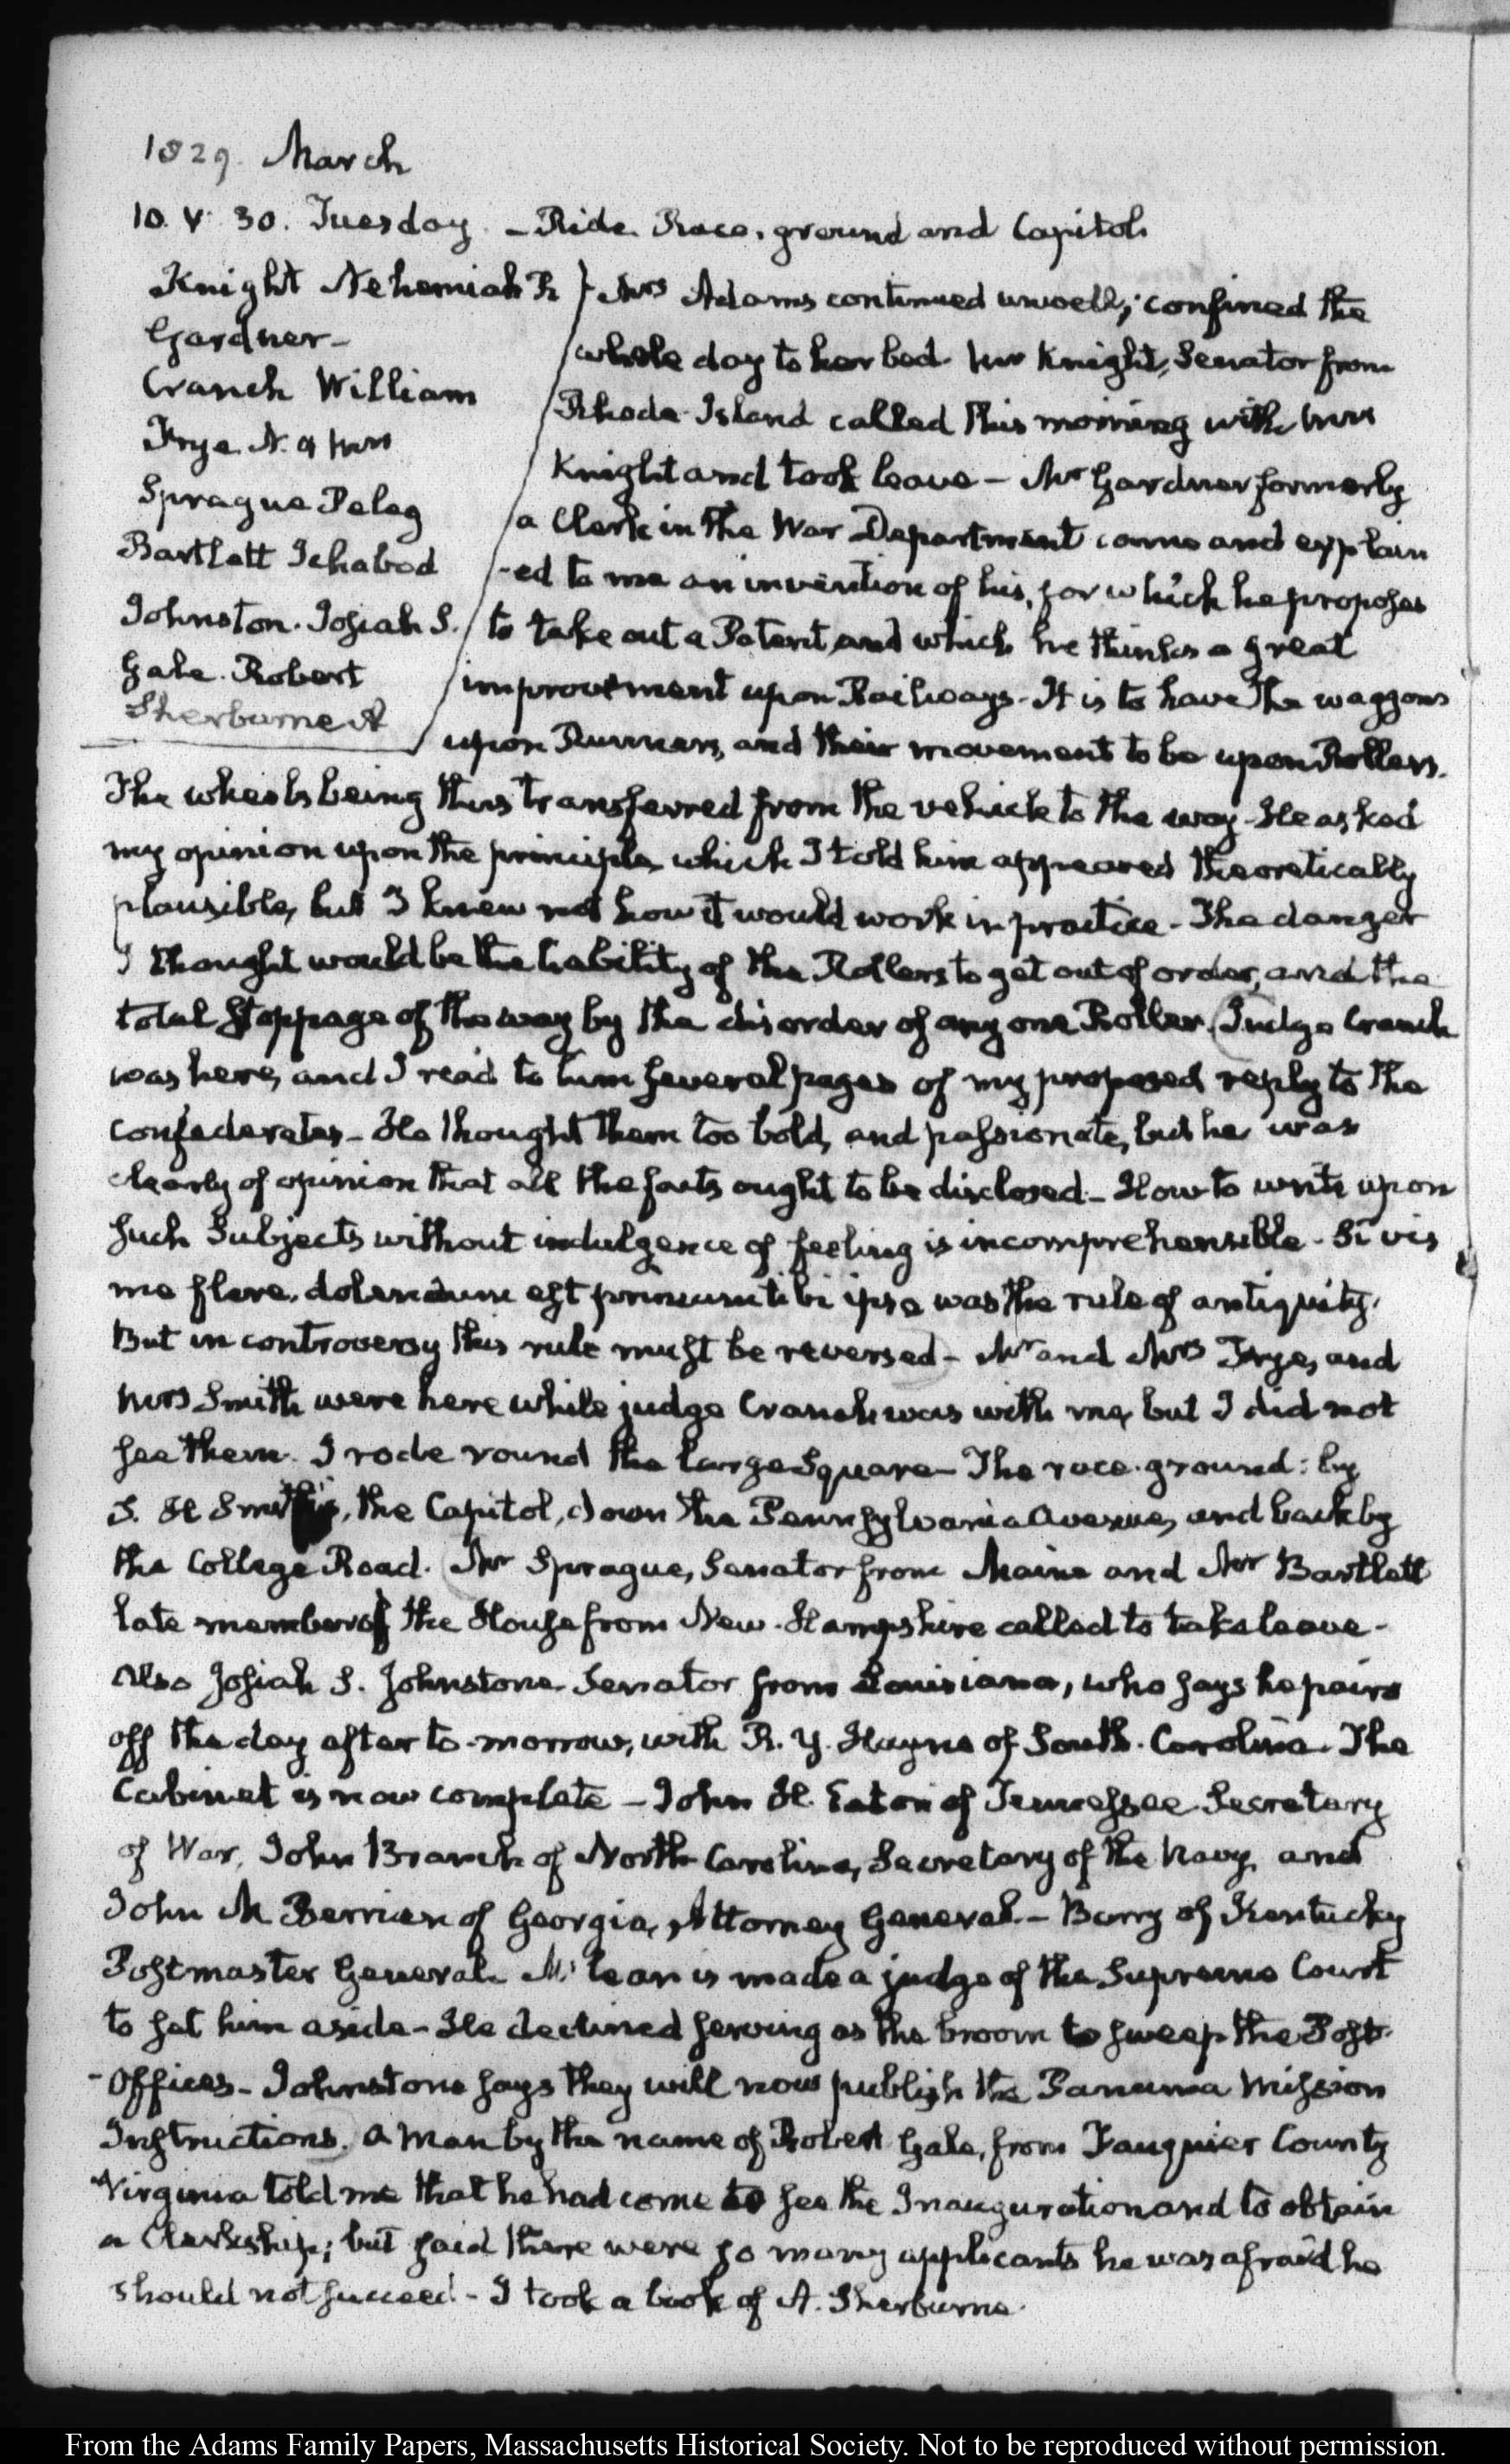 1829. March
10. V. 30. Tuesday. – Ride. Race-ground and Capitol.
Knight Nehemiah R
Gardner –
Cranch William
Frye. N. & Mrs
Sprague Peleg
Bartlett Ichabod
Johnston. Josiah S.
Gale. Robert
Sherburne A
Mrs Adams continued unwell; confined the
whole day to her bed. Mr Knight, Senator from
Rhode-Island called this morning with Mrs
Knight and took leave – Mr Gardner formerly
a Clerk in the War Department came and explain
-ed to me an invention of his, for which he proposes
to take out a Patent, and which he thinks a great
improvement upon Railways. It is to have the waggons
upon Runners, and their movement to be upon Rollers.
The wheels being thus transferred from the vehicle to the way. He asked
my opinion upon the principle which I told him appeared theoretically
plausible, but I knew not how it would work in practice. The danger
I thought would be the liability of the Rollers to get out of order, and the
total stoppage of the way by the disorder of any one Roller. Judge Cranch
was here, and I read to him several pages of my proposed reply to the
Confederates – He thought them too bold, and passionate, but he was
clearly of opinion that all the facts ought to be disclosed – How to write upon
such Subjects without indulgence of feeling is incomprehensible. Si vis
me flere, dolendum est primum tibi ipse was the rule of antiquity.
But in controversy this rule must be reversed – Mr and Mrs Frye, and
Mrs Smith were here while judge Cranch was with me, but I did not
see them. I rode round the large Square – The race-ground: by
S. H Smith's, the Capitol, down the Pennsylvania Avenue, and back by
the College Road. Mr Sprague, Senator from Maine and Mr Bartlett
late member of the House from New-Hampshire called to take leave –
Also Josiah S. Johnstone Senator from Louisiana, who says he pairs
off the day after to-morrow, with R. Y. Hayne of South-Carolina. The
Cabinet is now complete – John H. Eaton of Tennessee Secretary
of War, John Branch of North-Carolina, Secretary of the Navy, and
John M Berrien of Georgia, Attorney General – Barry of Kentucky
Postmaster General. McLean is made a judge of the Supreme Court
to set him aside – He declined serving as the broom to sweep the Post
-Offices – Johnstone says they will now publish the Panama Mission
Instructions. A man by the name of Robert Gale, from Fauquier County
Virginia told me that he had come to see the Inauguration and to obtain
a Clerkship; but said there were so many applicants he was afraid he
should not succeed – I took a book of A. Sherburne.
From the Adams Family Papers, Massachusetts Historical Society. Not to be reproduced without permission.